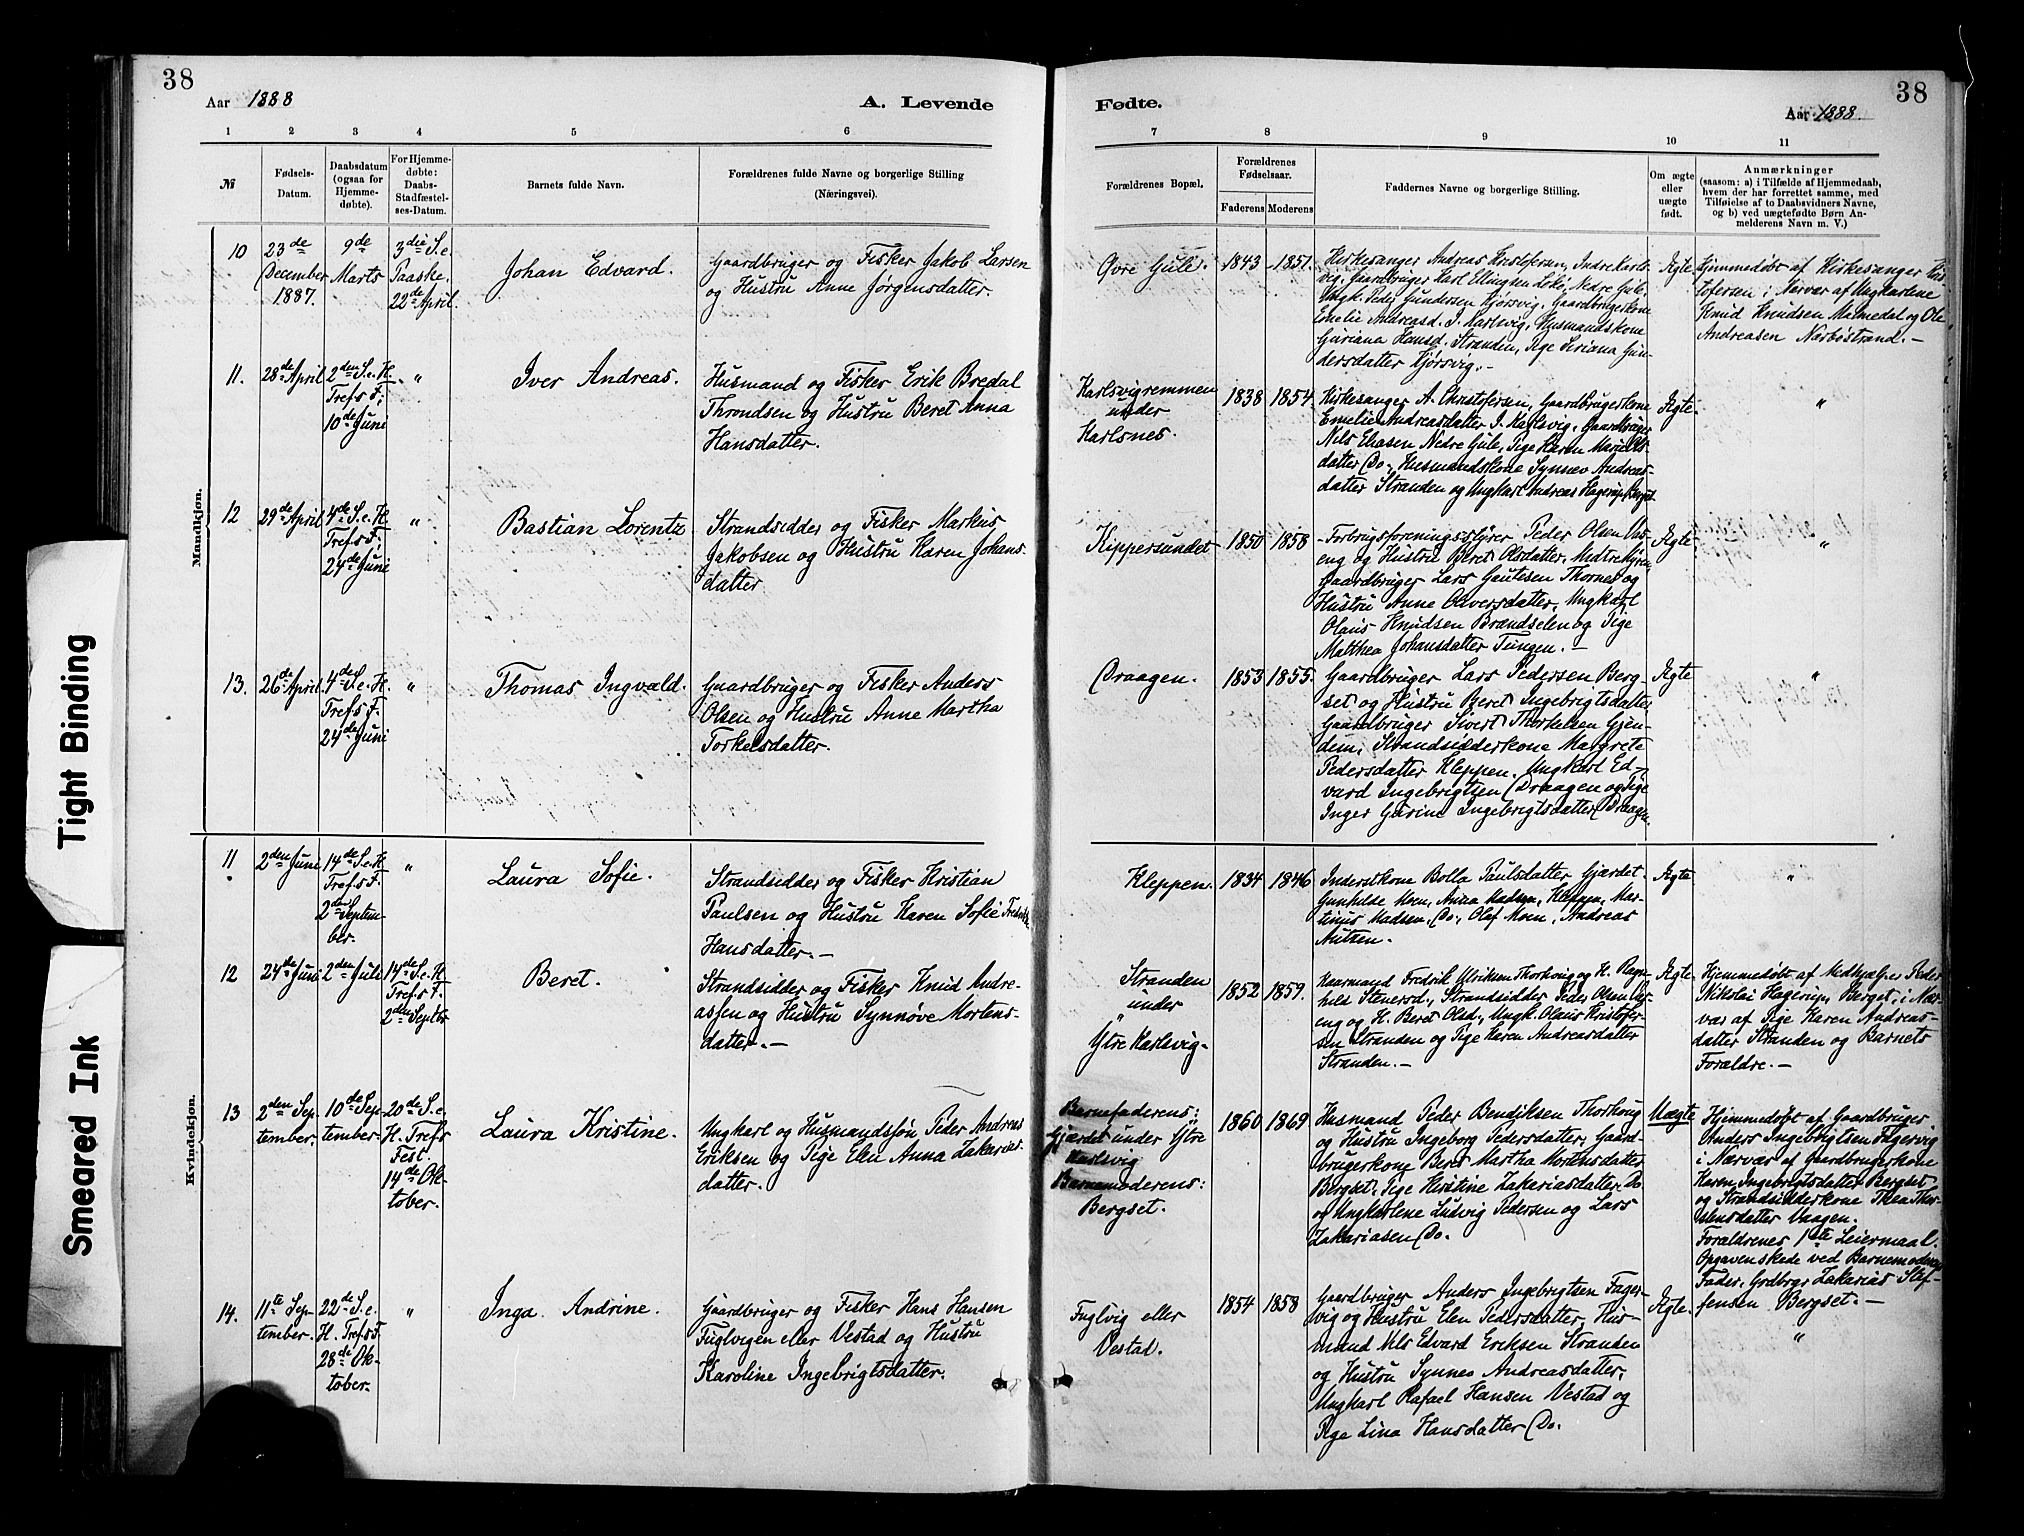 38
Aar 1888
A. Levende
1 2 3 4 5 6
№
Fødsels-
Datum.
Daabsdatum
(ogsaa for
Hjemme-
døbte).
For Hjemme-
døbte:
Daabs-
Stadfæstel-
ses-Datum.
Barnets fulde Navn.
Forældrenes fulde Navne og borgerlige Stilling
(Næringsvei).
Mandkjøn.
10
23de
December
1887.
9de
Marts
3die S. e.
Paaske.
22de April
Johan Edvard.
Gaardbruger og Fisker Jakob Larsen
og Hustru Anne Jørgensdatter.
11.
28de April
2den S. e. H.
Tref s F.
10de Juni
"
Iver Andreas.
Husmand og Fisker Erik Bredal
Throndsen og Hustru Beret Anna
Hansdatter.
12
29de April
4de S. e. H.
Tref s F.
24de Juni
"
Bastian Lorentz
Strandsidder og Fisker Markus
Jakobsen og Hustru Karen Johans-
datter
13.
26de April
4de S. e. H.
Tref s F.
24de Juni
"
Thomas Ingvald.
Gaardbruger og Fisker Anders
Olsen og Hustru Anne Martha
Torkelsdatter.
Kvindekjøn.
11
2den Juni
14de S. e. H
Tref s F.
2den Septem-
ber.
"
Laura Sofie.
Strandsidder og Fisker Kristian
Paulsen og Hustru Karen Sofie
Hansdatter.-
12
24de Juni
2den Juli
14de S. e. H
Tref s F.
2den Septbr
Beret.
Strandsidder og Fisker Knud Andre-
assen og Hustru Synnøve Mortens-
datter.-
13
2den Sep-
tember.
10de Sep-
tember.
20de S. e.
H. Tref s
Fest.
14de Ok-
tober.
Laura Kristine.
Ungkarl og Husmandssøn Peder Andreas
Eriksen og Pige Elen Anna Zakarias-
datter.
14.
11te Sep-
tember.
22de S. e.
H. Tref s F.
28de Ok-
tober.
"
Inga Andrine.
Gaardbruger og Fisker Hans Hansen
Fuglvigen eller Vestad og Hustru
Karoline Ingebrigtsdatter.
Fødte.
38
Aar 1888.
7 8 9 10 11
Forældrenes Bopæl.
Forældrenes
Fødselsaar.
Faderens Moderens
Faddernes Navne og borgerlige Stilling.
Om ægte
eller
uægte
født.
Anmærkninger
(saasom: a) i Tilfælde af Hjemmedaab,
hvem der har forrettet samme, med
Tilføielse af to Daabsvidners Navne,
og b) ved uægtefødte Børn An-
melderens Navn m. V.)
Øvre Gule.
1843 1851.
Kirkesanger Andreas Kristofersen, Indre Karls-
vig, Gaardbruger Karl Ellingsen Nedre Gule,
Ungk. Peder Gundersen Kjørsvig, Gaardbrugerkone
Emelie Andreasd. I. Karlsvig, Husmandskone
Guriana Hansd. Stranden, Pige Seriana Gun-
dersdatter Kjørsvig.-
Ægte
Hjemmedøbt af Kirkesanger Kris-
tofersen i Nærvær af Ungkarlene
Knud Knudsen Malmedal og Ole
Andreasen Nærbøstrand.-
Karlsvigremmen
under
Karlsnes.
1838 1854
Kirkesanger A. Christofersen, Gaardbrugerkone
Emelie Andreasdatter I. Karlsvig, Gaardbruger
Nils Eliasen Nedre Gule, Pige Karen Marie Ols-
datter Do., Husmandskone Synnøv Andreas-
datter Stranden og Ungkarl Andreas Hagerup Berget
Ægte
"
Kippersundet
1850 1858
Forbrugsforeningsstyrer Peder Olsen Vas-
eng og Hustru Beret Olsdatter, Midtre Myren
Gaardbruger Lars Gautesen Thornes og
Hustru Anne Oliversdatter, Ungkarl
Olaus Knudsen Brandselen og Pige
Matthea Johansdatter Tungen.-
Ægte
"
Draagen.
1853 1855.
Gaardbruger Lars Pedersen Berg-
set og Hustru Beret Ingebrigtsdatter
Gaardbruger Sivert Thorkelsen Gjen-
dem, Strandsidderkone Margrete
Pedersdatter Kleppen, Ungkarl Ed-
vard Ingebrigtsen Draagen og Pige
Inger Gurine Ingebrigtsdatter Draagen.
Ægte
"
Kleppen.
1834 1846
Inderstkone Bolla Paulsdatter Gjærdet.
Gunhilde Moen, Anna Madsen, Kleppen, Mar-
tinus Madsen, Do, Olaf Moen, Andreas
Ægte
"
Stranden
under
Ytre Karlsvig.
1852 1859.
Kaarmand Fredrik Ulriksen Thorhoug og H. Ragn-
hild Stenersd., Strandsidder Peder Olsen Vas-
eng og H. Beret Olsd., Ungk. Olaus Kristofer-
sen Stranden og Pige Karen Andreasdatter
Stranden.-
Ægte
Hjemmedøbt af Medhjælper Peder
Nikolai Hagerup, Berget, i Nær-
vær af Pige Karen Andreas-
datter Stranden og Barnets
Forældre.-
Barnefaderens:
Gjærdet under Ytre
Karlsvig
Barnemoderens:
Bergset.
1860 1869
Husmand Peder Bendiksen Thorhoug
og Hustru Ingeborg Pedersdatter, Gaard-
brugerkone Beret Martha Mortensdatter
Bergset, Pige Kristine Zakariasdatter Do
og Ungkarlene Ludvig Pedersen og Lars
Zakariasen Do.
Uægte
Hjemmedøbt af Gaardbruger
Anders Ingebrigtsen Fagervig
i Nærvær af Gaardbrugerkone
Karen Ingebrigtsdatter Bergset
og Strandsidderkone Thea Thor-
stensdatter Vaagen.
Forældrenes 1ste Leiermaal.
Opgaven skede ved Barnemoderens
Fader, Grdbrgr Zakarias Stef-
fensen Bergset.-
Fuglvig eller
Vestad.
1854 1858
Gaardbruger Anders Ingebrigtsen Fager-
vig og Hustru Elen Pedersdatter, Hus-
mand Nils Edvard Eriksen Stranden
og Hustru Synnes Andreasdatter,
Ungkarl Rafael Hansen Vestad og
Pige Lina Hansdatter Do.
Ægte.
"
Tight Binding
Smeared Ink